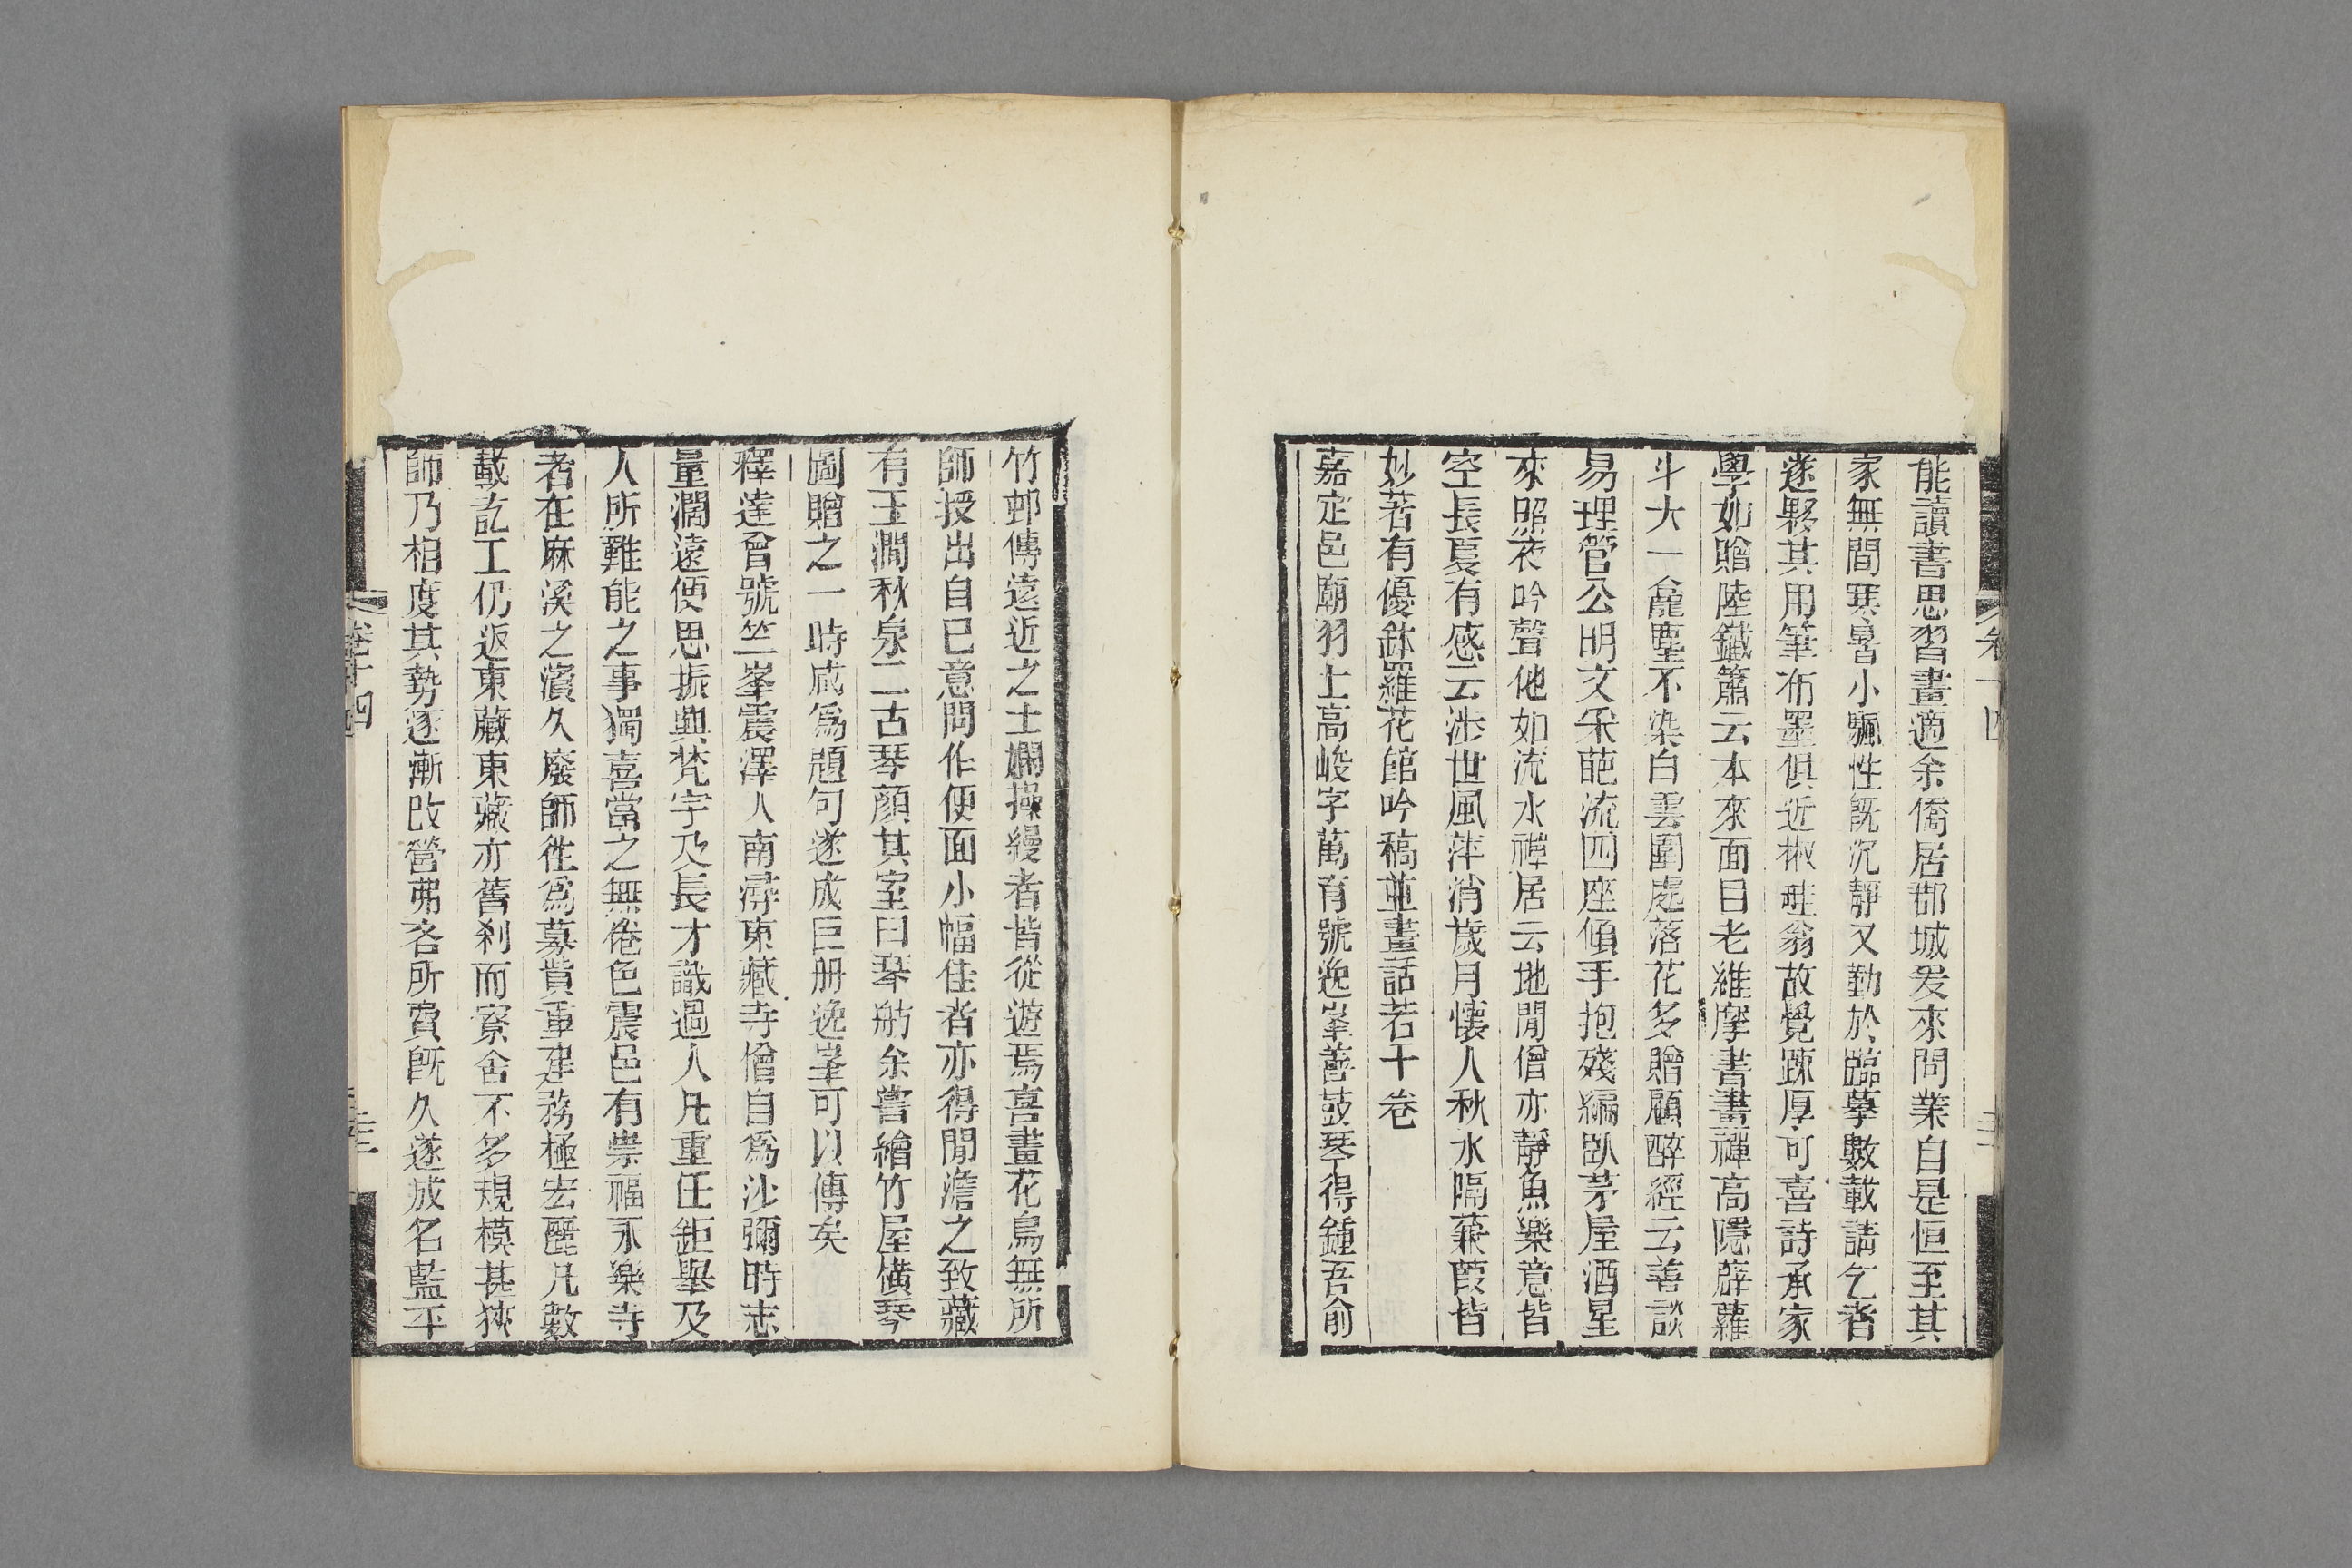 能讀書思習畫適余僑居郡城爰來問業自是恒至其
家無間寒暑小颿性既沉靜又勤於臨摹數載請乞者
遂夥其用筆布墨俱近椒畦翁故覺疎厚可喜詩承家
學如贈陸鐵簫云本來面目老維摩書畫禪高隱薜蘿
斗大一龕塵不染白雲圍處落花多贈顧醉經云善談
易理管公明文采葩流四座傾手抱殘編臥茅屋酒星
來照夜吟聲他如流水禪居云地閒僧亦靜魚樂意皆
空長夏有感云涉世風萍消歲月懷人秋水隔蒹葭皆
妙著有優鉢羅花館吟稿並畫話若干卷
嘉定邑廟羽士高峻字萬育號逸峯善鼓琴得鍾吾俞
竹邨傳遠近之士嫻操縵者皆從遊焉喜畫花鳥無所
師授出自已意間作便面小幅佳者亦得閒澹之致藏
有玉澗秋泉二古琴顏其室曰琴舫余嘗繪竹屋橫琴
圖贈之一時咸爲題句遂成巨册逸峯可以傳矣
釋達曾號竺峯震澤人南潯東藏寺僧自爲沙彌時志
量濶遠便思振興梵宇乃長才識過人凡重任鉅舉及
人所難能之事獨喜當之無倦色震邑有崇福永樂寺
者在麻溪之濱久廢師徃爲募貲重建務極宏麗凡數
載訖工仍返東藏東藏亦舊刹而寮舍不多規模甚狹
師乃相度其勢逐漸改營弗吝所費旣久遂成名藍平
卷十四